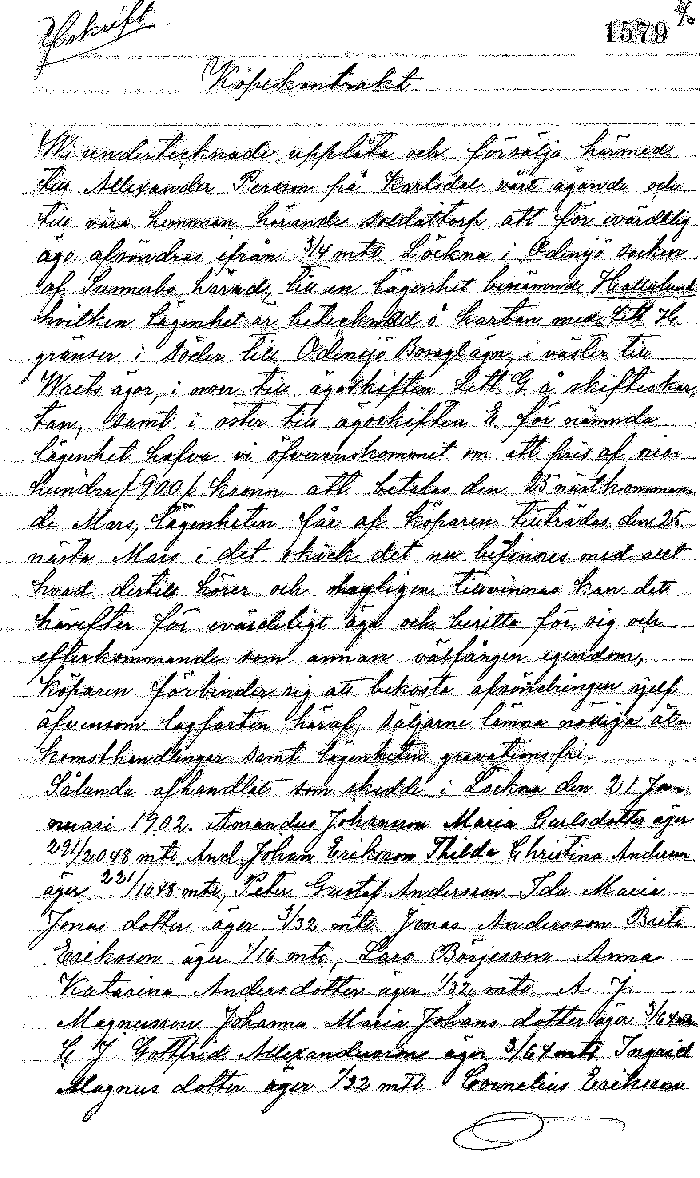 Afskrift
1579
Köpekontrakt
Wi undertecknade upplåta och försälja härmed
till Allexander Person på Karlsdal våre ägande och
till våra hemman hörande soldattorp att för evärdelig
ägo afsöndras ifrån 3/4 mtl Löckna i Ödensjö socken
af Sunnerbo härad, till en lägenhet benämnd Hallalund
hvilken lägenhet är betecknad å kartan med Litt H.
gränser i söder till Ödensjö Boraglägn, i väster till
Wrets ägor, i norr till ägoskiften Litt G å skifteskar
tan, samt i öster till ägoskiften E för nämnda
lägenhet hafva vi öfverenskommit om ett pris af nio
hundra /900/ kronor att betalas den 25 nästkomman
de Mars, lägenheten får af köparen tillträdas den 25
nästa Mars i det skick det nu befinnes med allt
hvad dertill hörer och möjligen tillvinnas kan det
härefter för evärdeligt äga och besitta för sig och
efterkommande som annan välfången egendom,
Köparen förbinder sig att bekosta afsöndringen sjelf
äfvensom lagfarten häraf, säljarne lämna nödiga åt
komsthandlingar samt lägenheten gravationsfri.
Sålunda afhandlat som skedde i Löckna den 21 Jan
nuari 1902. Amandus Johansson Maria Carlsdotter äger
221/2048 mtl, And. Johan Erikson Thilda Christina Anderson
äger 221/1048 mtl, Peter Gustaf Andersson Ida Maria
Jonas dotter äger 3/32 mtl Jonas Andersson Brita
Eriksson äger 1/16 mtl, Lars Börjesson Anna
Katarina Andersdotter äger 1/32 mtl A. J.
Magnusson Johanna Maria Johans dotter äger 3/64 mtl
C J Gottfrid Allexandersson äger 3/64 mtl Ingrid
Magnus dotter äger 1/32 mtl Cornelius Eriksson